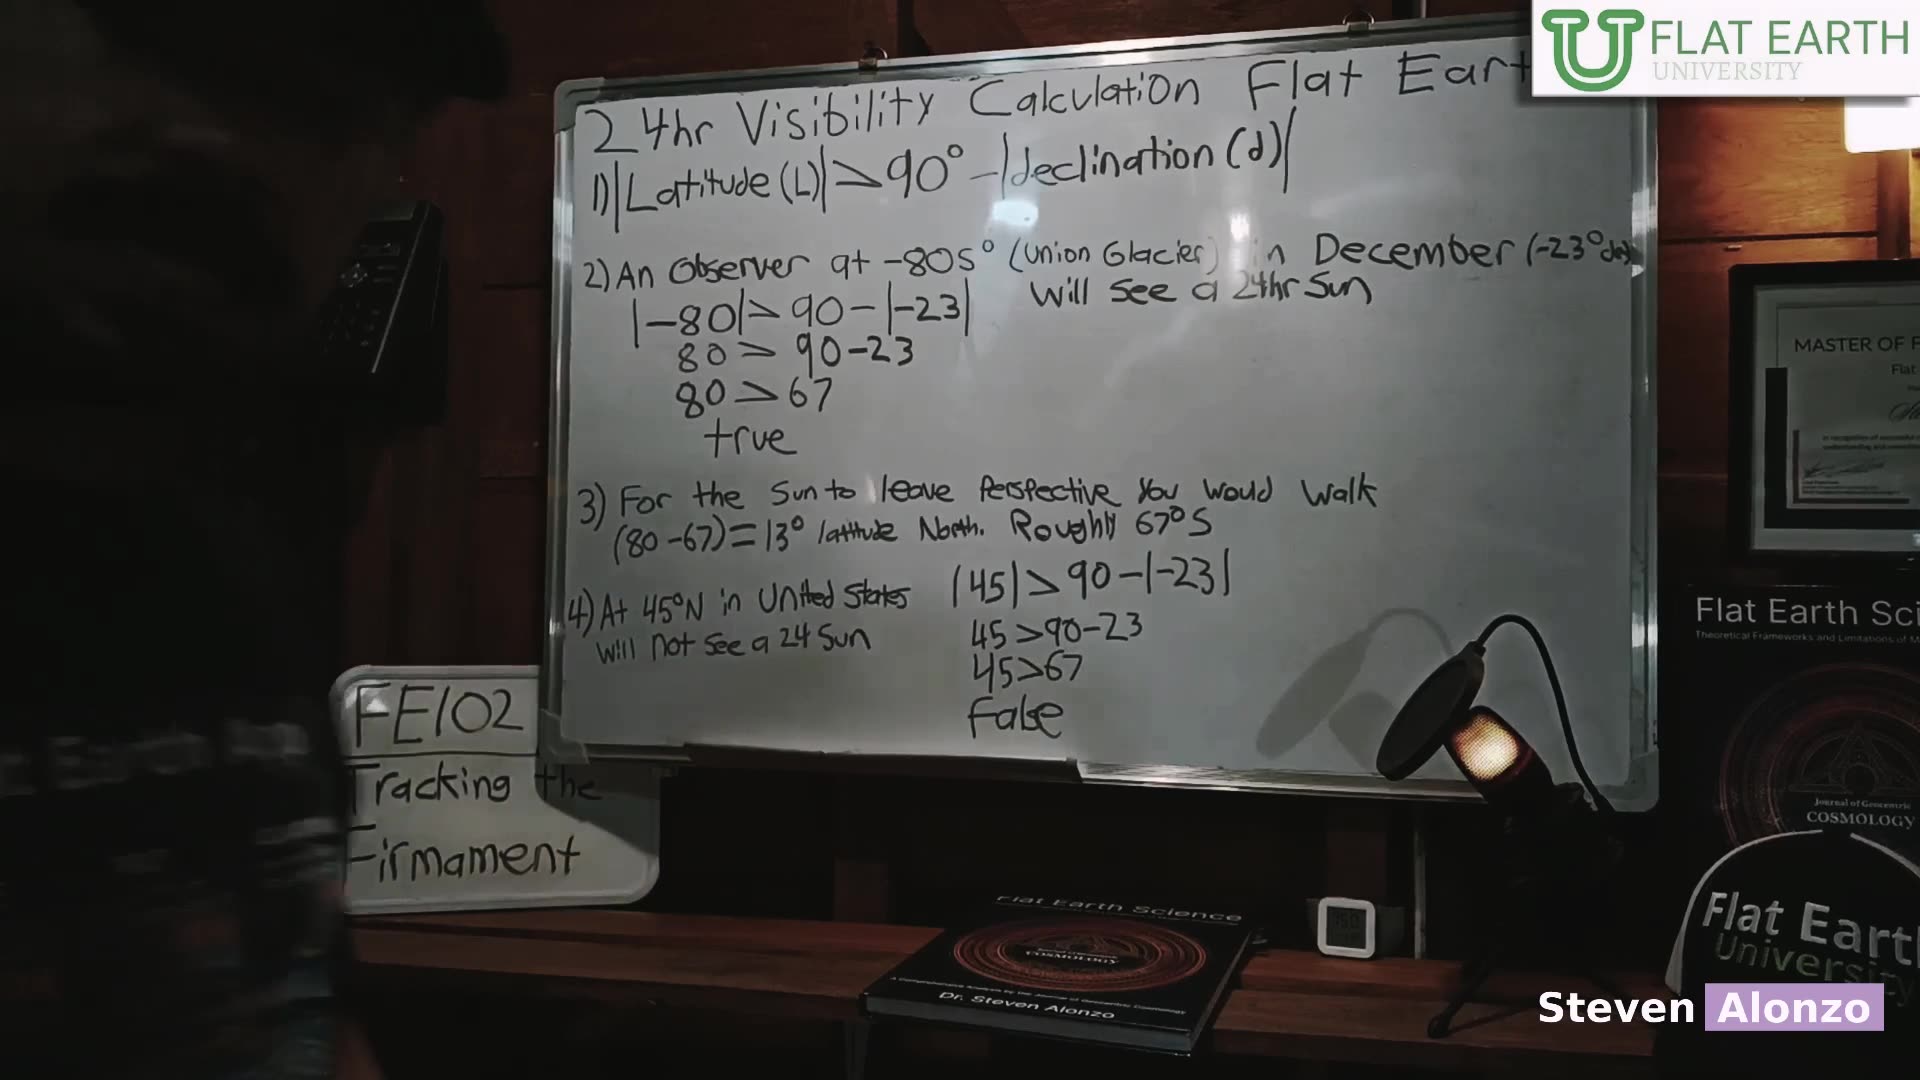 U FLAT EARTH
UNIVERSITY
24hr Visibility Calculation Flat Eart
1) |Latitude (L)| > 90° - |declination (d)|
2) An Observer at -80S° (Union Glacier) in December (-23° dec)
will see a 24hr Sun
|-80| > 90 - |-23|
80 > 90-23
80 > 67
true
3) For the Sun to leave Perspective You Would Walk
(80-67) = 13° latitude North. Roughly 67°S
4) At 45°N in United States
will not see a 24 Sun
|45| > 90 - |-23|
45 > 90-23
45 > 67
False
FE102
Tracking the
Firmament
MASTER OF F
Flat
Flat Earth Sci
Theoretical Frameworks and Limitations of M
Journal of Geocentric
COSMOLOGY
Flat Earth Science
COSMOLOGY
Dr. Steven Alonzo
Flat Eart
University
Steven Alonzo